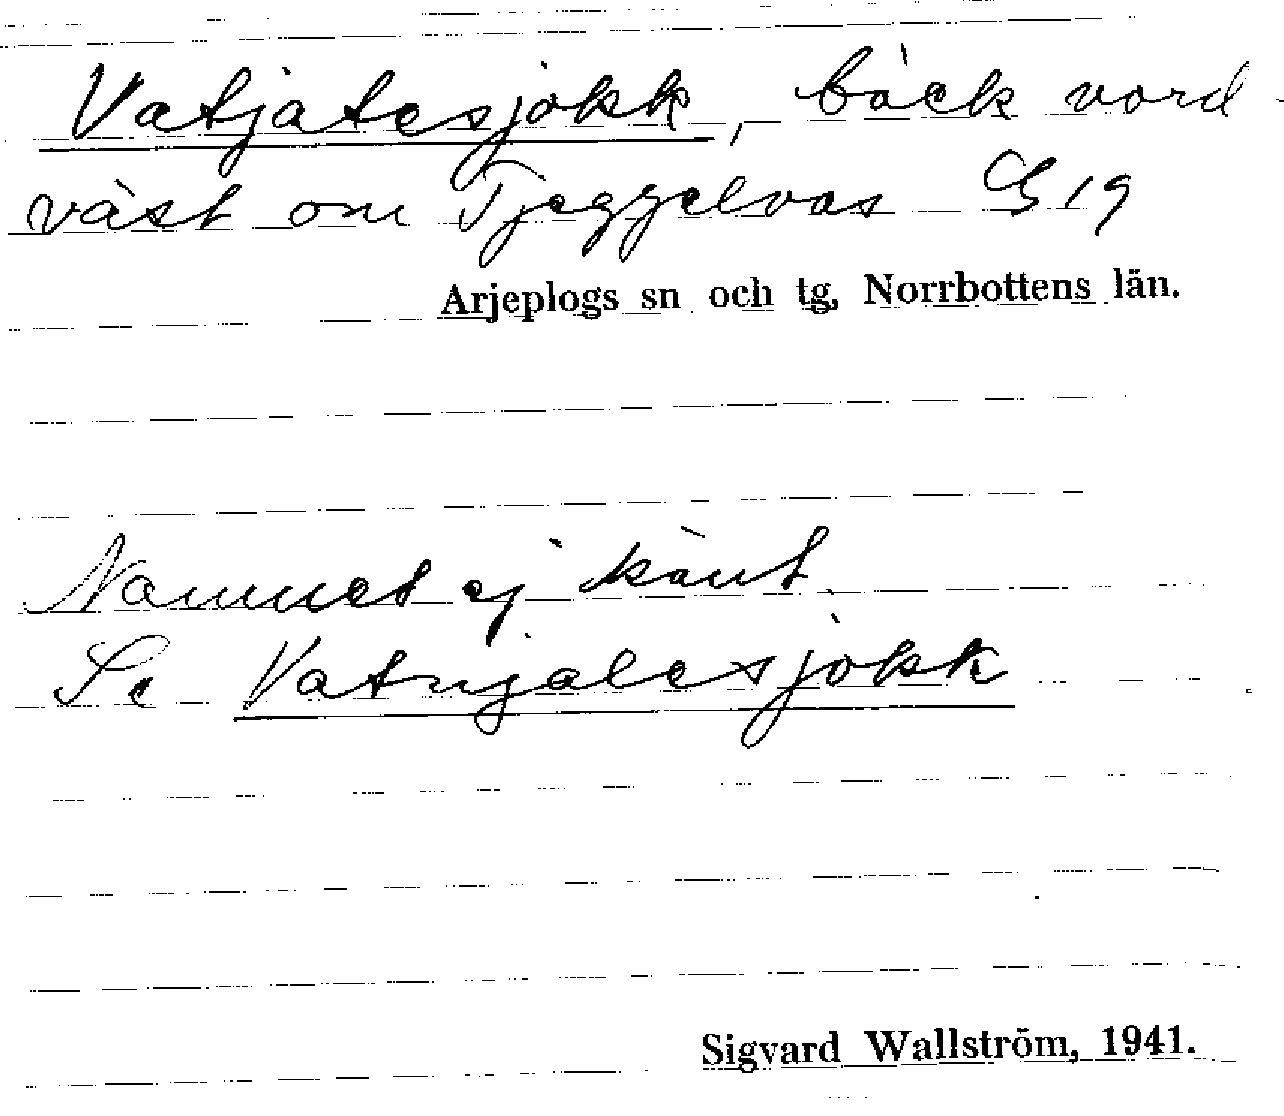 Vatjatesjåkk, bäck nord-
väst om Tjeggelvas G 19
Arjeplogs sn och tg, Norrbottens län.
Namnet ej känt.
Se Vatnjalesjåkk
Sigvard Wallström, 1941.